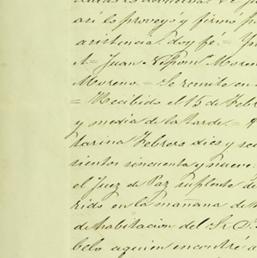 así lo proveyó y firmó p
asistencia doy fé.= Y
Juan Moreno
Moreno.= Se remite en
= Recibido el 15 de Febr
y media de la tarde.=
tarina Febrero dies y se
sientos cincuenta y nueve.
el Juez de Paz suplente d
rido en la mañana de
de habitacion del Sr. D.
belo aquien encontré